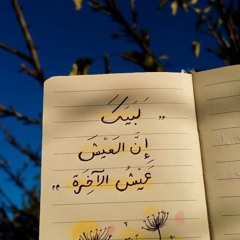 „ لَبَيَكَ
إِنَّ العَيْشَ
عَيْشُ الآخِرَة „